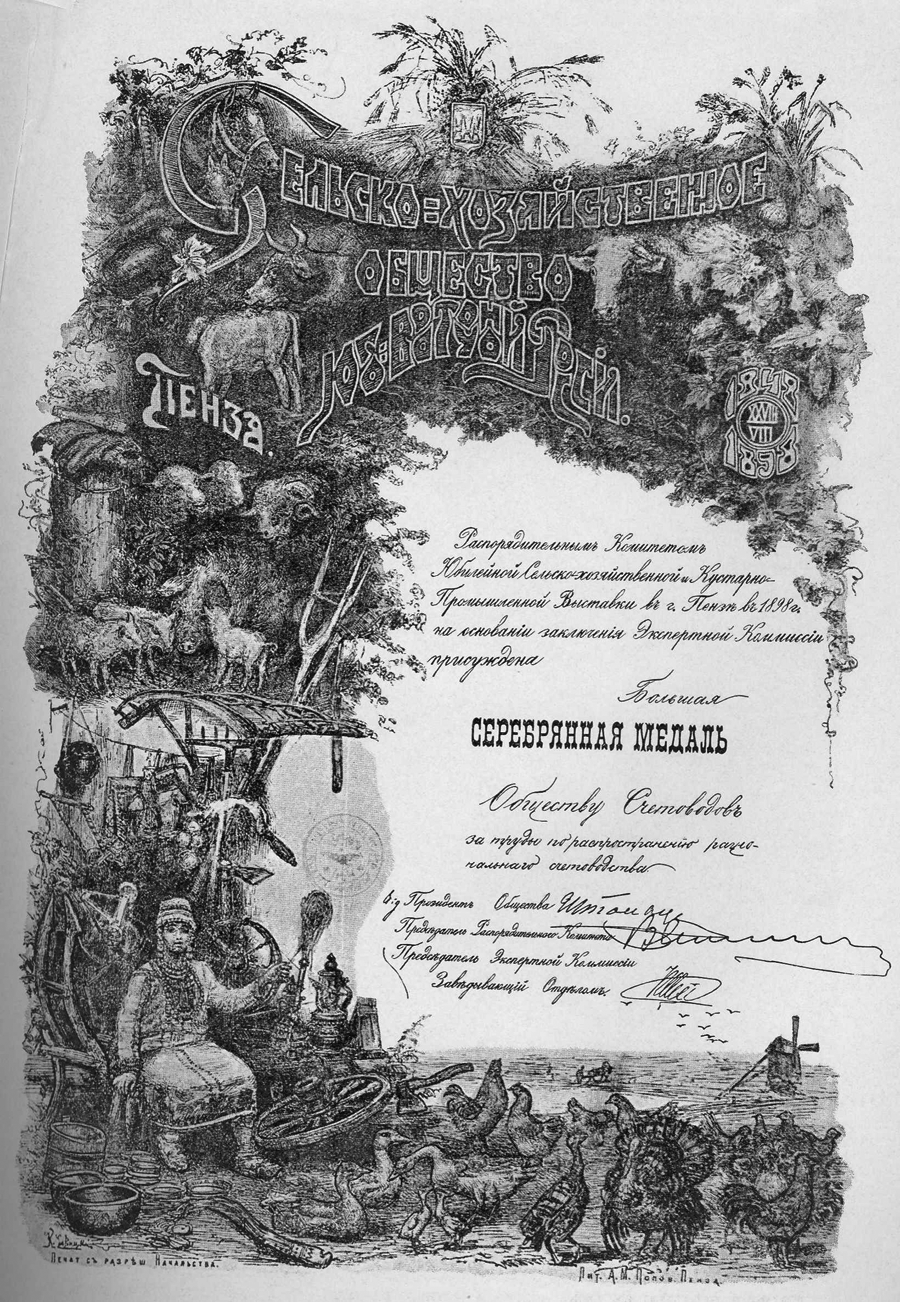 Сельско=хозяйственное
общество
Юго=Восточной Россiи.
Пенза.
1848
XXVIII
VIII
1898
Распорядительнымъ Комитетомъ
Юбилейной Сельско-хозяйственной и Кустарно-
Промышленной Выставки въ г. Пензѣ въ 1898 г.
на основанiи заключенiя Экспертной Коммиссiи
присуждена
Большая
СЕРЕБРЯННАЯ МЕДАЛЬ
Обществу Счетоводовъ
за труды по распространенiю рацiо-
нальнаго счетоводства
В. д. Президентъ Общества
Предсѣдатель Распорядительнаго Комитета
Предсѣдатель Экспертной Коммиссiи
Завѣдывающiй Отдѣломъ.
Печат. съ разрѣш. Начальства.
Лит. А. М. Попов. Пенза.